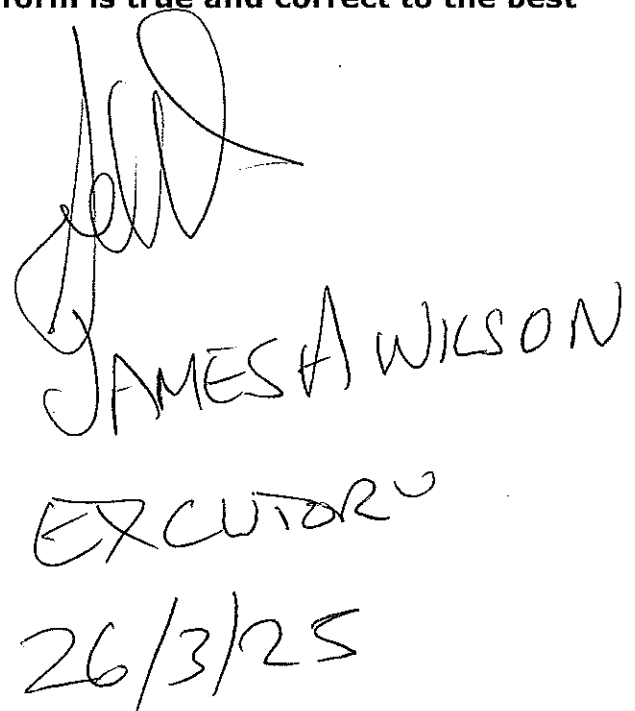 form is true and correct to the best
JAMES A WILSON
EXCUTOR
26/3/25